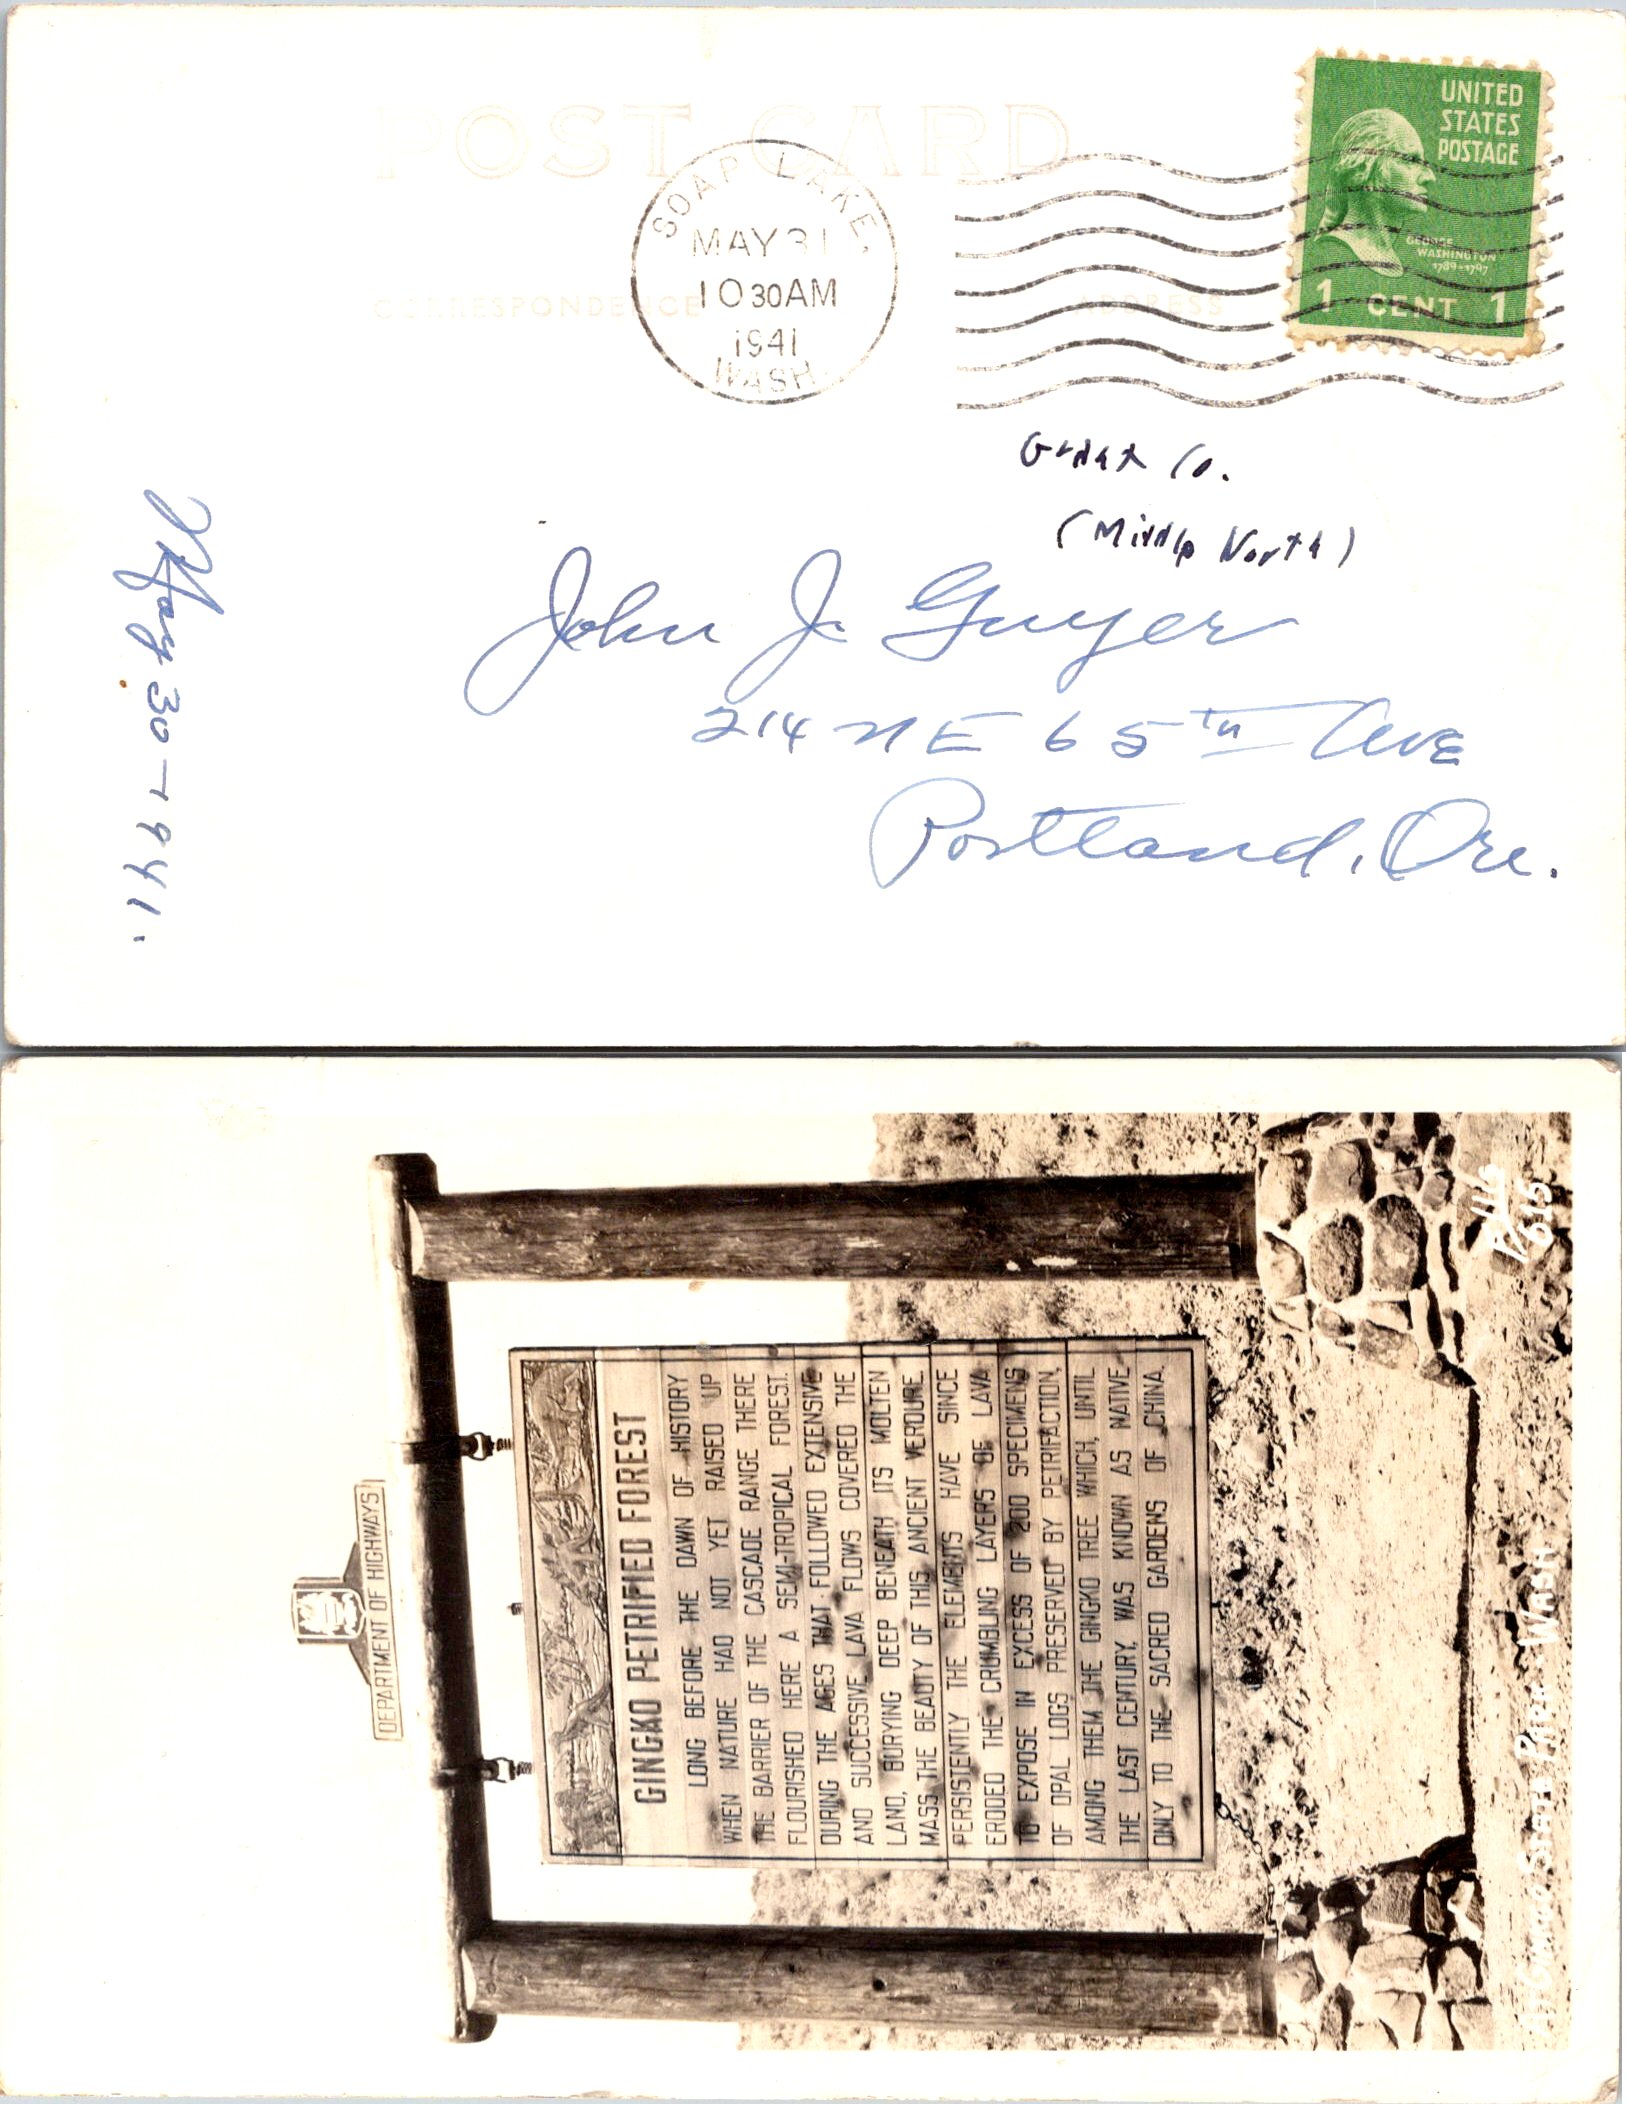 POST CARD
SOAP LAKE,
MAY 31
10 30 AM
1941
WASH.
UNITED
STATES
POSTAGE
GEORGE
WASHINGTON
1789-1797
1 CENT 1
CORRESPONDENCE
ADDRESS
Grant Co.
(Middle North)
John J. Guyer
214 N E 65th Ave
Portland, Ore.
May 30-1941.
DEPARTMENT OF HIGHWAYS
GINGKO PETRIFIED FOREST
LONG BEFORE THE DAWN OF HISTORY
WHEN NATURE HAD NOT YET RAISED UP
THE BARRIER OF THE CASCADE RANGE THERE
FLOURISHED HERE A SEMI-TROPICAL FOREST.
DURING THE AGES THAT FOLLOWED EXTENSIVE
AND SUCCESSIVE LAVA FLOWS COVERED THE
LAND, BURYING DEEP BENEATH ITS MOLTEN
MASS THE BEAUTY OF THIS ANCIENT VERDURE.
PERSISTENTLY THE ELEMENTS HAVE SINCE
ERODED THE CRUMBLING LAYERS OF LAVA
TO EXPOSE IN EXCESS OF 200 SPECIMENS
OF OPAL LOGS PRESERVED BY PETRIFACTION,
AMONG THEM THE GINGKO TREE WHICH, UNTIL
THE LAST CENTURY, WAS KNOWN AS NATIVE
ONLY TO THE SACRED GARDENS OF CHINA.
WASH
615